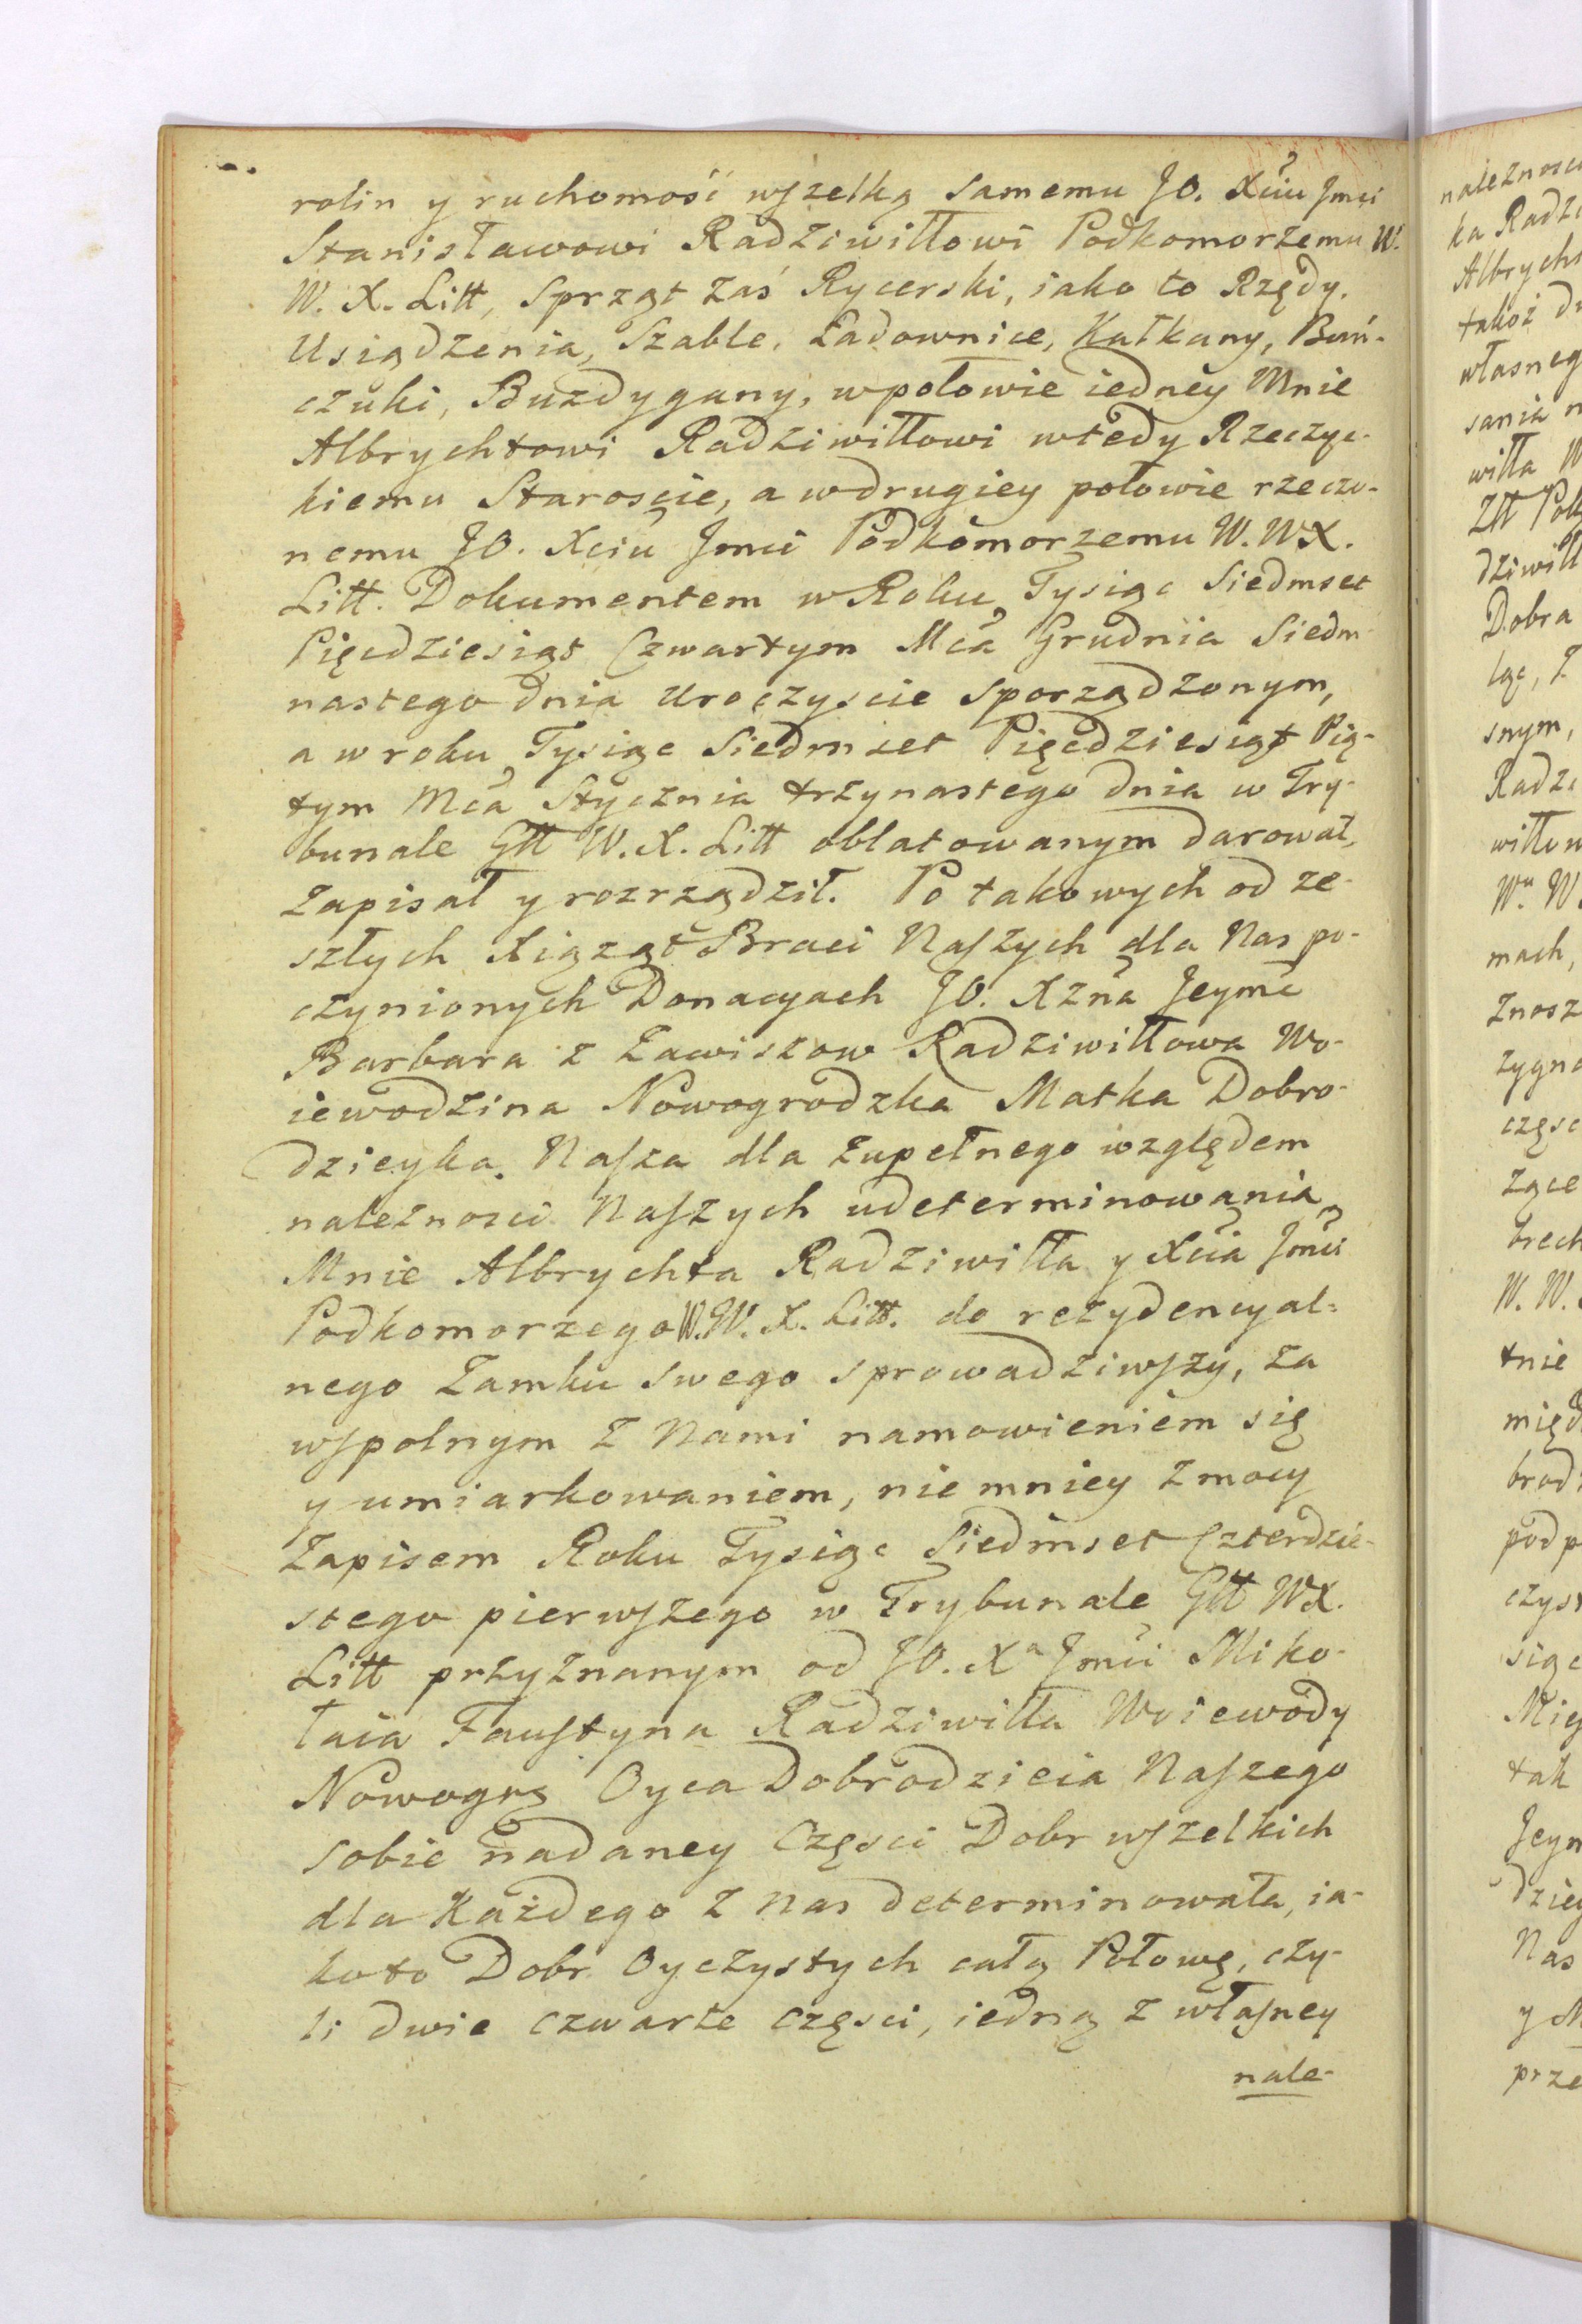 rolin y ruchomość wszelką samemu JO. Xciu Jmci
Stanisławowi Radziwiłłowi Podkomorzemu W.
W. X. Litt, Sprzęt zaś Rycerski, iako to Rzędy.
Usiądzenia, Szable, Ładownice, Kałkany, Buń-
czuki, Buzdygany, w połowie iedney Mnie
Albrychtowi Radziwiłłowi wtedy Rzeczyc-
kiemu Staroscie, a w drugiey połowie rzeczo-
nemu JO. Xciu Jmci Podkomorzemu W. WX.
Litt. Dokumentem w Roku Tysiąc Siedmset
Pięćdziesiąt Czwartym Mca Grudnia Siedm-
nastego dnia Uroczyscie sporządzonym,
a w roku Tysiąc Siedmset Pięćdziesiąt Pią-
tym Mca Stycznia trzynastego dnia w Try-
bunale Gtt W. X. Litt oblatowanym darował,
zapisał y rozrządził. Po takowych od ze-
szłych Xiąząt Braci Naszych dla Nas po-
czynionych Donacyach JO. Xzna Jeymć
Barbara z Zawiszow Radziwiłłowa Wo-
iewodzina Nowogrodzka Matka Dobro-
dzieyka Nasza dla zupełnego względem
nalezności Naszych udeterminowania
Mnie Albrychta Radziwiłła y Xcia Jmci
Podkomorzego W. W. X. Litt. do rezydencyal-
nego Zamku swego sprowadziwszy, za
wspolnym z Nami namowieniem się
y umiarkowaniem, nie mniey z mocy
Zapisem Roku Tysiąc Siedmset Czterdzie-
stego pierwszego w Trybunale Gtt WX.
Litt przyznanym od JO. Xa Jmci Miko-
łaia Faustyna Radziwiłła Woiewody
Nowogrg Oyca Dobrodzieia Naszego
sobie nadaney Częsci Dobr wszelkich
dla Każdego z nas determinowała, ia-
ko to Dobr Oyczystych całą Połowę, czy-
li dwie czwarte częsci, iedną z własney
nale-